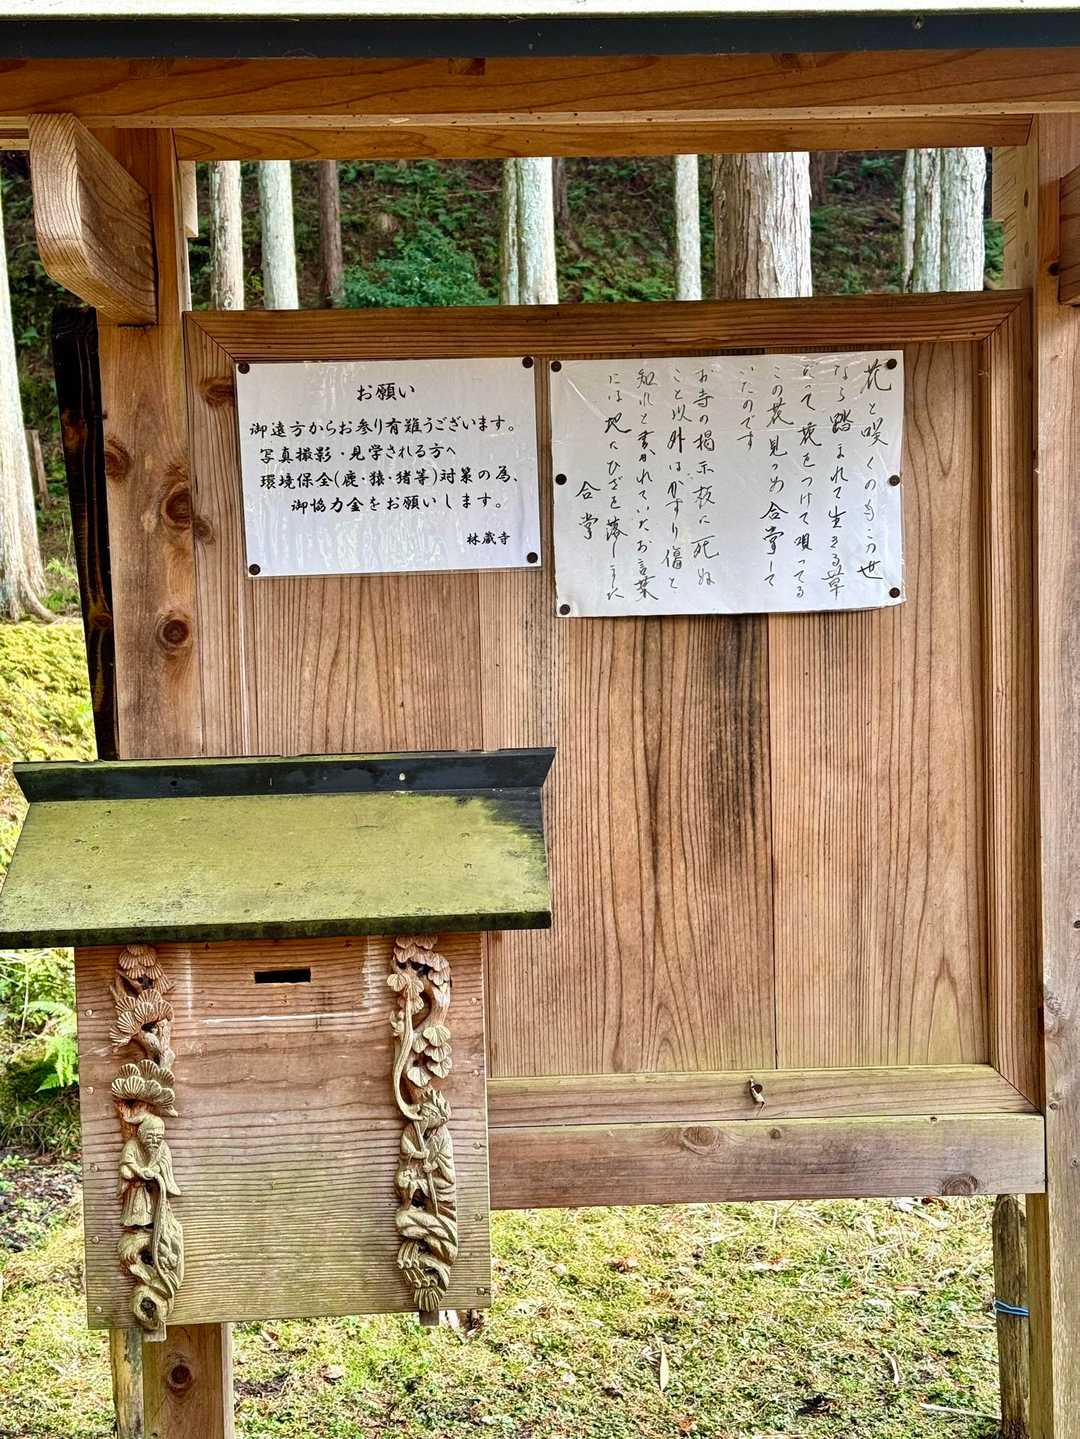 お願い
御遠方からお参り有難うございます。
写真撮影・見学される方へ
環境保全(鹿・猿・猪等)対策の為、
御協力金をお願いします。
林蔵寺
花と咲くのもこの世
なら踏まれて生きる草
だって花をつけて唄ってる
この花見つめ合掌して
いたのです
お寺の掲示板に死ぬ
こと以外はかすり傷と
知れと書かれていたお言葉
には地にひざを落しました
合掌